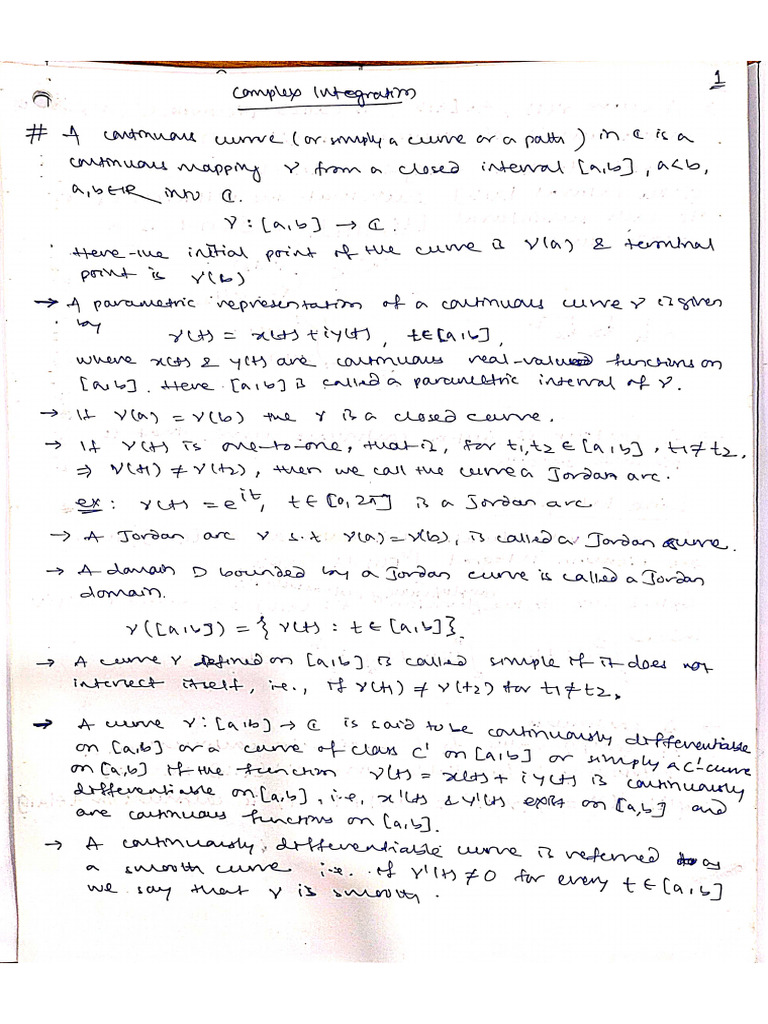 1
Complex Integration
# A continuous curve (or simply a curve or a path) in ℂ is a
continuous mapping γ from a closed interval [a,b], a<b,
a,b∈ℝ into ℂ.
γ : [a,b] → ℂ.
Here the initial point of the curve is γ(a) & terminal
point is γ(b)
→ A parametric representation of a continuous curve γ is given
by γ(t) = x(t) + iy(t), t∈[a,b],
where x(t) & y(t) are continuous real-valued functions on
[a,b]. Here [a,b] is called a parametric interval of γ.
→ If γ(a) = γ(b) the γ is a closed curve.
→ If γ(t) is one-to-one, that is, for t₁,t₂ ∈ [a,b], t₁≠t₂,
⇒ γ(t₁) ≠ γ(t₂), then we call the curve a Jordan arc.
ex: γ(t) = e^{it}, t∈[0,2π] is a Jordan arc
→ A Jordan arc γ s.t γ(a)=γ(b), is called a Jordan curve.
→ A domain D bounded by a Jordan curve is called a Jordan
domain.
γ([a,b]) = {γ(t) : t∈[a,b]}.
→ A curve γ defined on [a,b] is called simple if it does not
intersect itself, i.e., if γ(t₁) ≠ γ(t₂) for t₁≠t₂,
→ A curve γ:[a,b] → ℂ is said to be continuously differentiable
on [a,b] or a curve of class C' on [a,b] or simply a C'-curve
on [a,b] if the function γ(t) = x(t) + iy(t) is continuously
differentiable on [a,b], i.e, x'(t) & y'(t) exist on [a,b] and
are continuous functions on [a,b].
→ A continuously, differentiable curve is referred to as
a smooth curve i.e. if γ'(t) ≠ 0 for every t∈[a,b]
we say that γ is smooth.